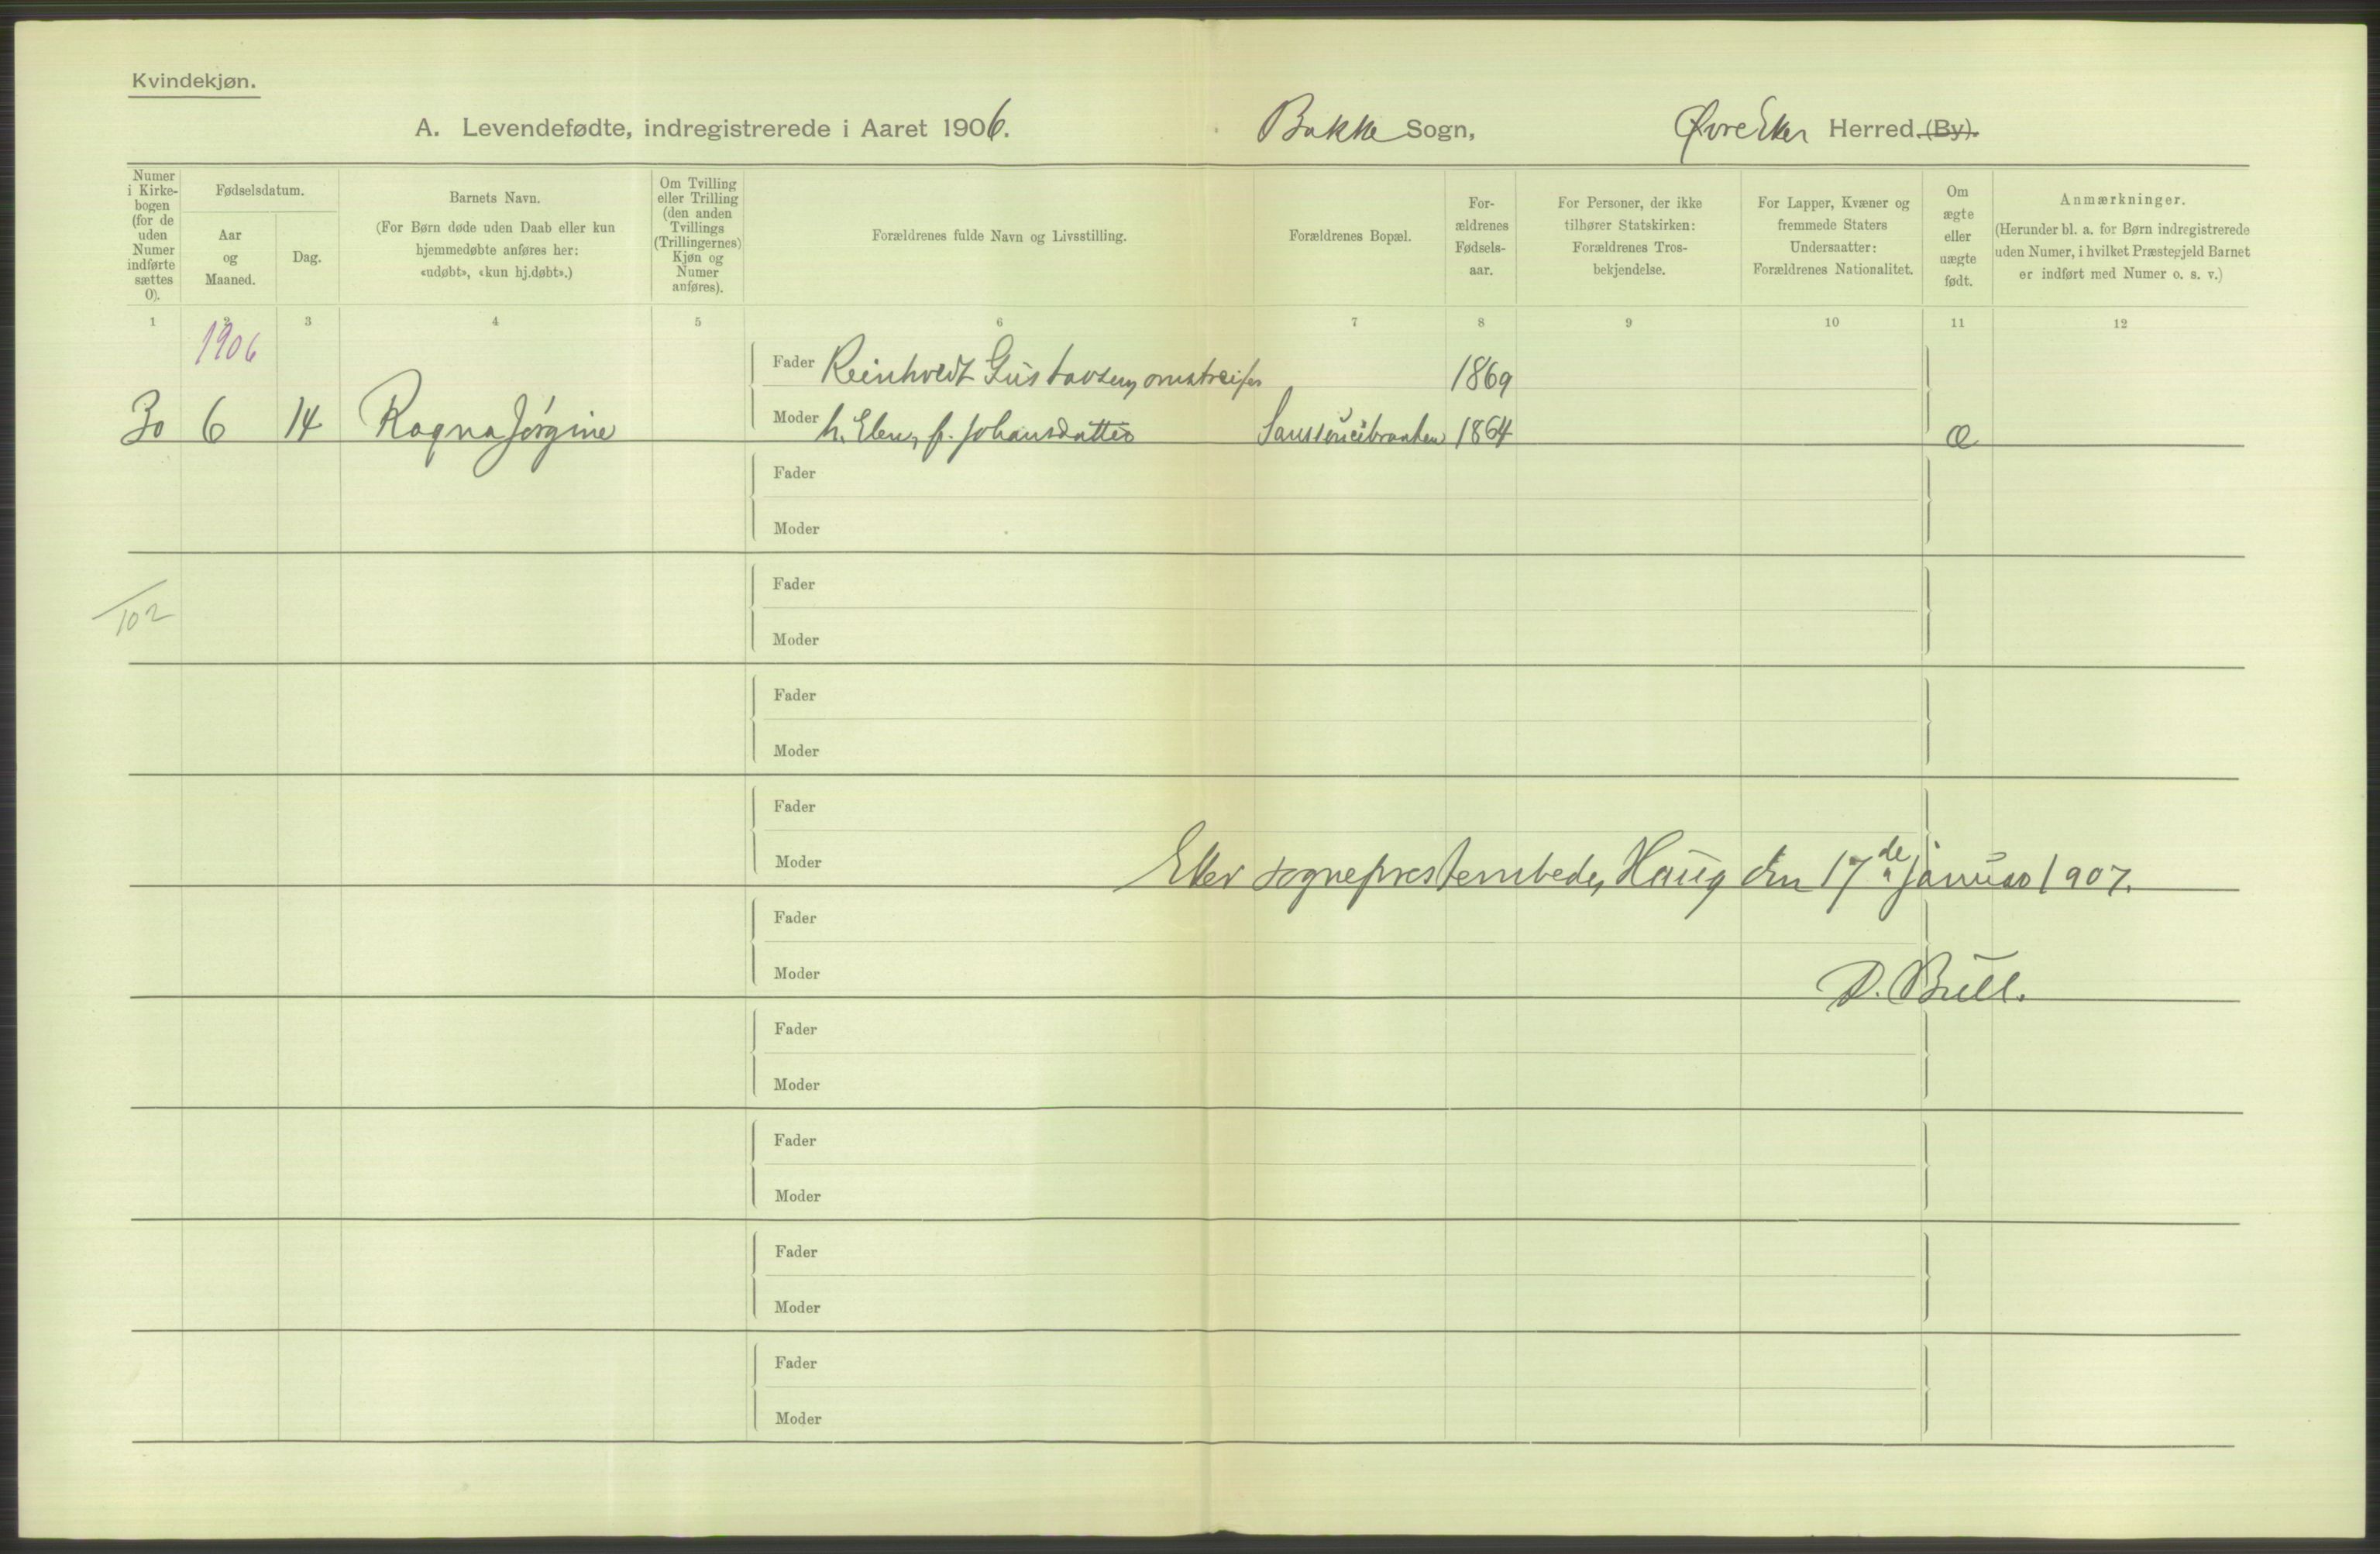 Kvindekjøn.
A. Levendefødte, indregistrerede i Aaret 1906. Bakke Sogn, Øvre Eker Herred (By).
Numer i Kirkebogen (for de uden Numer indførte sættes 0).
Fødselsdatum.
Aar og Maaned.
Dag.
Barnets Navn.
(For Børn døde uden Daab eller kun
hjemmedøbte anføres her:
«udøbt», «kun hj.døbt».)
Om Tvilling
eller Trilling
(den anden
Tvillings
(Trillingernes)
Kjøn og
Numer
anføres).
Forældrenes fulde Navn og Livsstilling.
Forældrenes Bopæl.
For-
ældrenes
Fødsels-
aar.
For Personer, der ikke
tilhører Statskirken:
Forældrenes Tros-
bekjendelse.
For Lapper, Kvæner og
fremmede Staters
Undersaatter:
Forældrenes Nationalitet.
Om
ægte
eller
uægte
født.
Anmærkninger.
(Herunder bl. a. for Børn indregistrerede
uden Numer, i hvilket Præstegjeld Barnet
er indført med Numer o. s. v.)
1 2 3 4 5 6 7 8 9 10 11 12
1906
Fader Reinholdt Gustavsen, omstreifer 1869
30 6 14 Ragna Jørgine Moder h. Elen, f. Johansdatter Sanssoucibraaten 1864 Æ
Fader
Moder
Fader
102
Moder
Fader
Moder
Fader
Moder Eker sogneprestembede, Haug den 17de januar 1907.
Fader
Moder D. Bull.
Fader
Moder
Fader
Moder
Fader
Moder
Fader
Moder